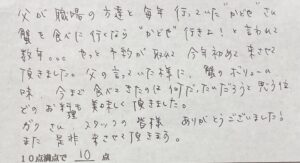 父が職場の方達と毎年行っていた"かどや"さん
蟹を食べに行くなら"かどや"行きよ!と言われて
数年... やっと予約が取れて今年初めて来させて
頂きました。父の言っていた様に、蟹のボリューム
味、今まで食べてきたのは何だったんだろうと思う位
どのお料理も美味しく頂きました。
スタッフの皆様 ありがとうございました!
また是非来させて頂きます。
10点満点で 10 点